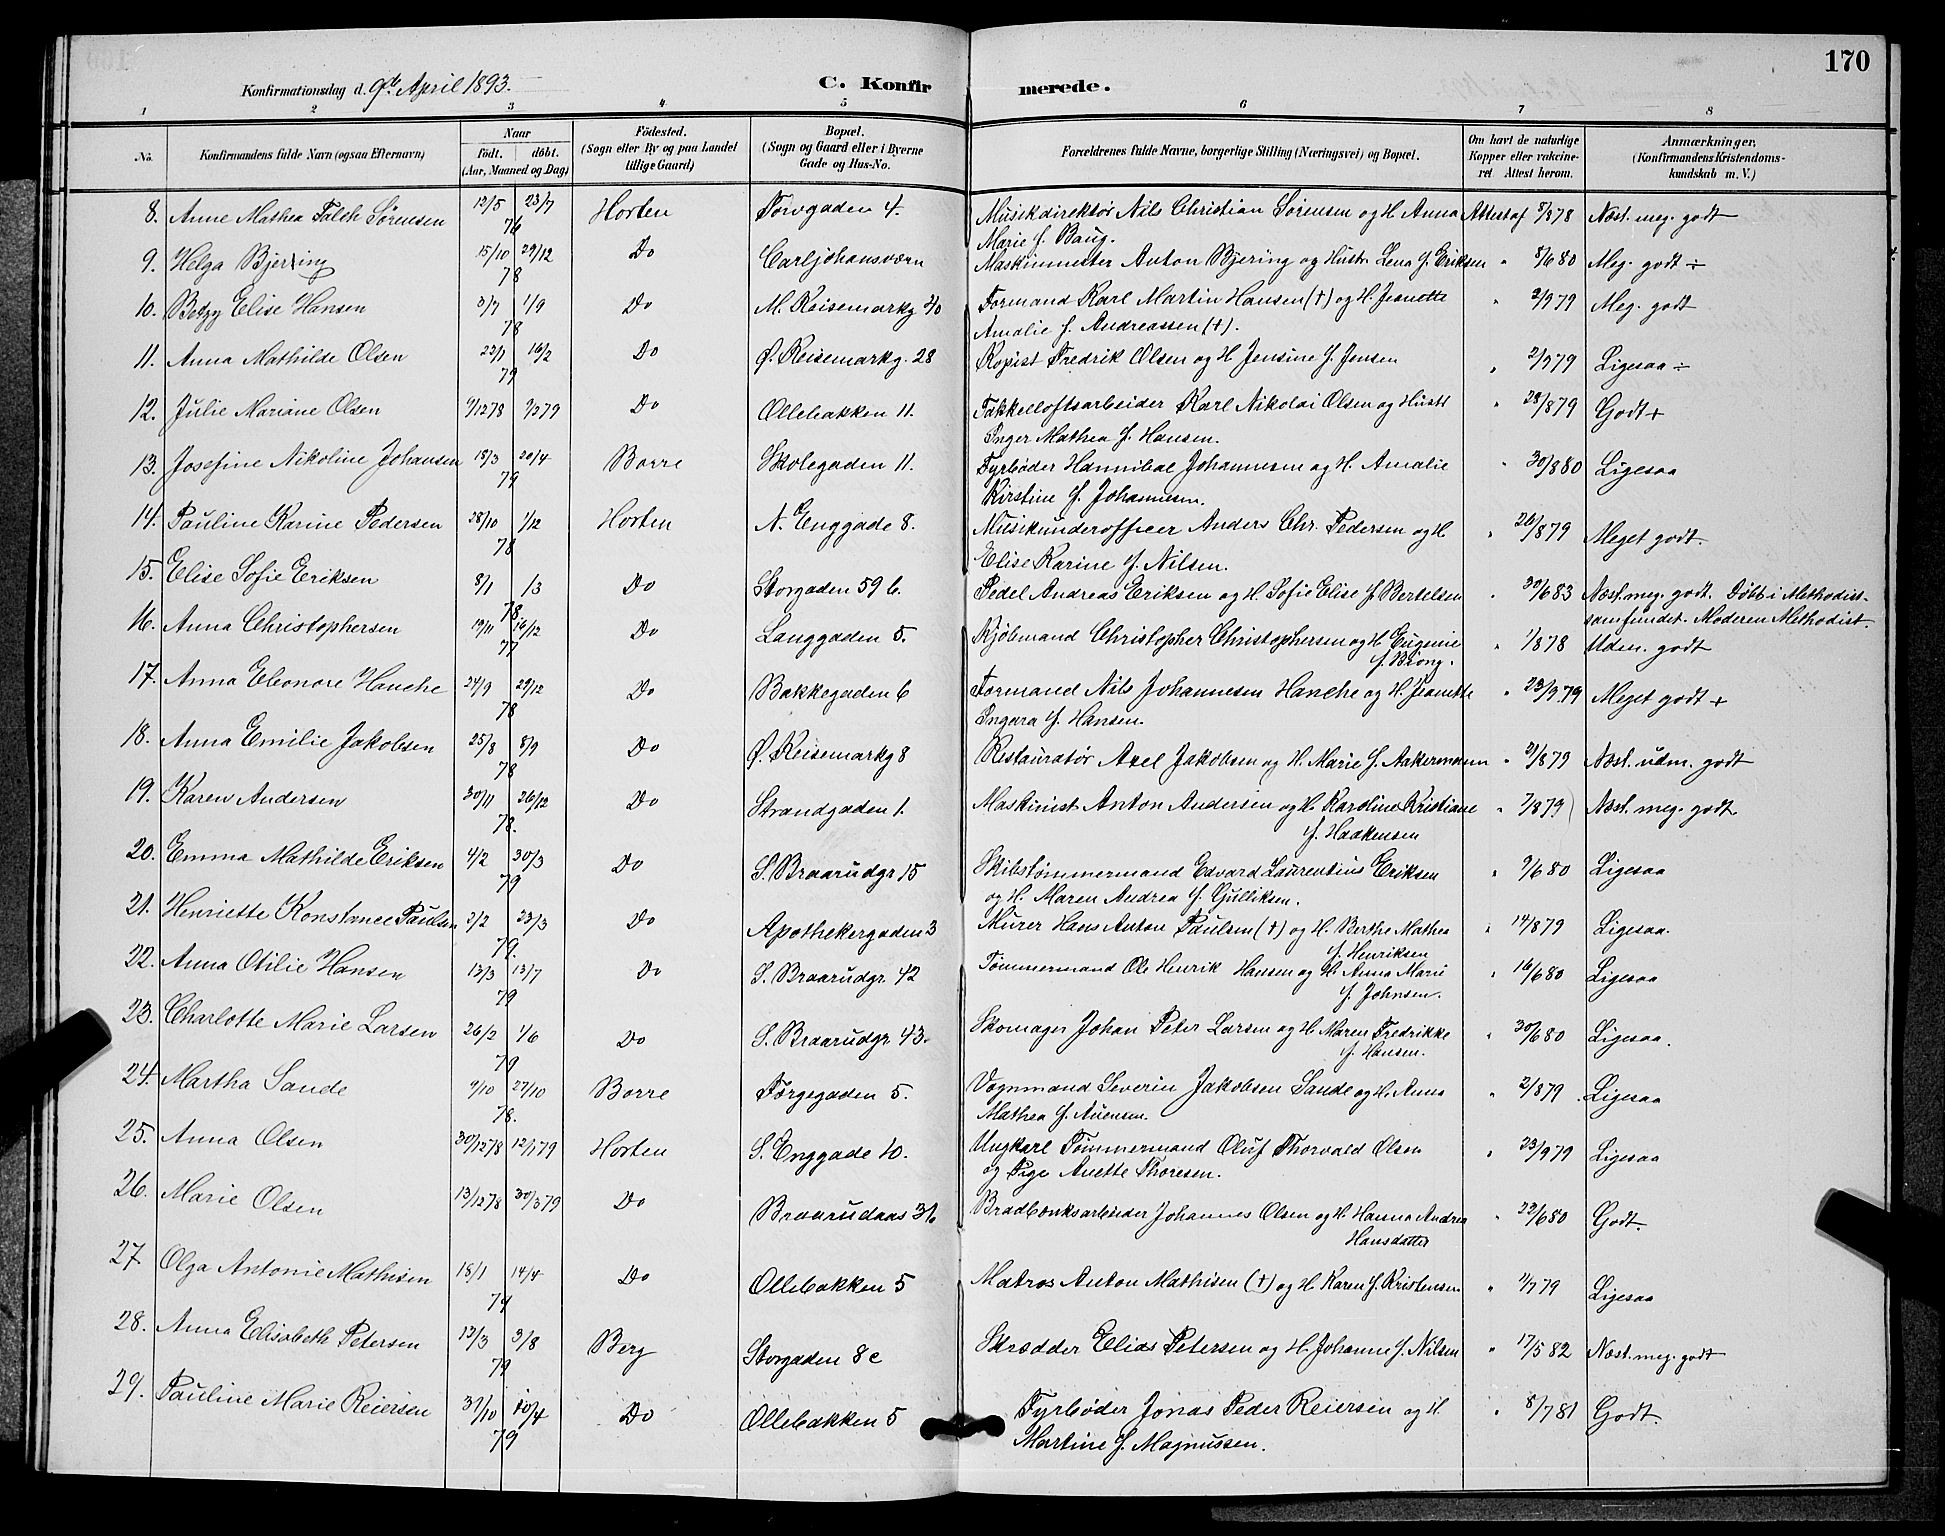 170
Konfirmationsdag d. 9de April 1893. C. Konfirmerede.
1 2 3 4 5 6 7 8
No. Konfirmandens fulde Navn (ogsaa Efternavn) Naar født. døbt. (Aar, Maaned og Dag) Fødested. (Sogn eller By og paa Landet tillige Gaard) Bopæl. (Sogn og Gaard eller i Byerne Gade og Hus-No. Forældrenes fulde Navne, borgerlige Stilling (Næringsvei) og Bopæl. Om havt de naturlige Kopper eller vakcineret. Attest herom. Anmærkninger. (Konfirmandens Kristendomskundskab m. V.)
8. Anne Mathea Falch Sørensen 12/5 23/7 76 Horten Torvgaden 4. Musikdirektør Nils Christian Sørensen og H. Anna Attest af 8/8 78 Næst. meg. godt
Marie f. Baug.
9. Helga Bjerring 15/10 29/12 78 Do Carljohansværn Maskinmester Anton Bjering og Hustr. Lena f. Eriksen " 8/6 80 Meg. godt ÷
10. Betzy Elise Hansen 3/7 1/9 78 Do M. Reisemarkg 40 Formand Karl Martin Hansen (+) og H. Jeanette " 2/9 79 Meg. godt
Amalie f. Andreassen (+).
11. Anna Mathilde Olsen 22/1 16/2 79 Do Ø. Reisemarkg. 28 Kopist Fredrik Olsen og H Jensine f. Jensen " 2/9 79 Ligesaa ÷
12. Julie Mariane Olsen 9/12 78 9/2 79 Do Ollebakken 11. Takkelloftsarbeider Karl Nikolai Olsen og Hustr " 28/8 79 Godt +
Inger Mathea f. Hansen.
13. Josefine Nikoline Johansen 18/3 20/4 79 Borre Skolegaden 11. Fyrbøder Hannibal Johannesen og H. Amalie " 30/8 80 Ligesaa
Kirstine f. Johannesen.
14. Pauline Karine Pedersen 28/10 1/12 78 Horten N. Enggade 8. Musikunderofficer Anders Chr. Pedersen og H " 26/8 79 Meget godt.
Elise Karine f. Nilsen.
15. Elise Sofie Eriksen 8/1 /3 78 Do Storgaden 59 b. Pedel Andreas Eriksen og H. Sofie Elise f Bertelsen " 30/6 83 Næst. meg. godt. Døbt i Methodist-
samfundet. Moderen Methodist.
16. Anna Christophersen 19/11 16/12 77 Do Langgaden 5. Kjøbmand Christopher Christophersen og H. Eugenie " 1/8 78 Udm. godt
f. Brong.
17. Anna Eleonore Hanche 24/9 29/12 78 Do Bakkegaden 6 Formand Nils Johannesen Hanche og H. Jeanette " 23/9 79 Meget godt +
Ingara f. Hansen.
18. Anna Emilie Jakobsen 25/8 8/9 78 Do Ø. Reisemarkg 8 Restauratør Axel Jakobsen og H. Marie f. Aakermann " 21/8 79 Næst. udm. godt
19. Karen Andersen 30/11 26/12 78. Do Strandgaden 1. Maskinist Anton Andersen og H. Karoline Kristiane " 7/8 79 Næst. meg. godt
f. Haakensen
20. Emma Mathilde Eriksen 4/2 30/3 79 Do S. Braarudgr 15 Skibstømmermand Edvard Laurentius Eriksen " 9/6 80 Ligesaa
og H. Maren Andrea f. Gulliksen.
21. Henriette Konstance Paulsen 2/2 23/3 79. Do Apothekergaden 3 Murer Hans Anton Paulsen (+) og H. Berthe Mathea " 14/8 79 Ligesaa.
f. Henriksen
22. Anna Otilie Hansen 13/3 13/7 79 Do S. Braarudgr. 42 Tømmermand Ole Henrik Hansen og H. Anna Marie " 16/6 80 Ligesaa
f. Johnsen.
23. Charlotte Marie Larsen 26/2 1/6 79 Do S. Braarudgr. 43. Skomager Johan Peter Larsen og H. Maren Fredrikke " 30/6 80 Ligesaa.
f. Hansen.
24. Martha Sande 9/10 27/10 78. Borre Færgegaden 5. Vognmand Severin Jakobsen Sande og H. Anna " 2/8 79 Ligesaa
Mathea f. Auensen.
25. Anna Olsen 30/12 78 12/1 79 Horten S. Enggade 10. Ungkarl Tømmermand Oluf Thorvald Olsen " 23/9 79 Ligesaa
og Pige Anette Thoresen.
26. Marie Olsen 13/12 78 30/3 79 Do Braarudaas 36 Bradbænksarbeider Johannes Olsen og H. Hanna Andrea " 22/6 80 Godt.
Hansdatter
27 Olga Antonie Mathisen 18/1 14/4 79 Do Ollebakken 5 Matros Anton Mathisen (+) og H. Karen f. Kristensen " 1/7 79 Ligesaa
28. Anna Elisabeth Petersen 13/3 3/8 79 Berg Storgaden 8 c Skrædder Elias Petersen og H. Johanne f. Nilsen " 17/5 82 Næst. meg. godt
29. Pauline Marie Reiersen 31/10 10/4 79 Do Ollebakken 5 Fyrbøder Jonas Peder Reiersen og H. " 8/7 81 Godt.
Martine f. Magnussen.